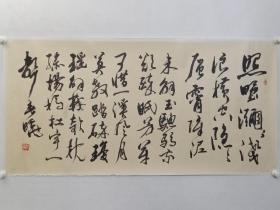 照野瀰瀰淺
浪橫空隱隱
層霄障泥
未解玉驄驕我
欲醉眠芳草
可惜一溪風月
莫教踏碎瓊
瑤解鞍欹枕
綠楊橋杜宇一
聲春曉